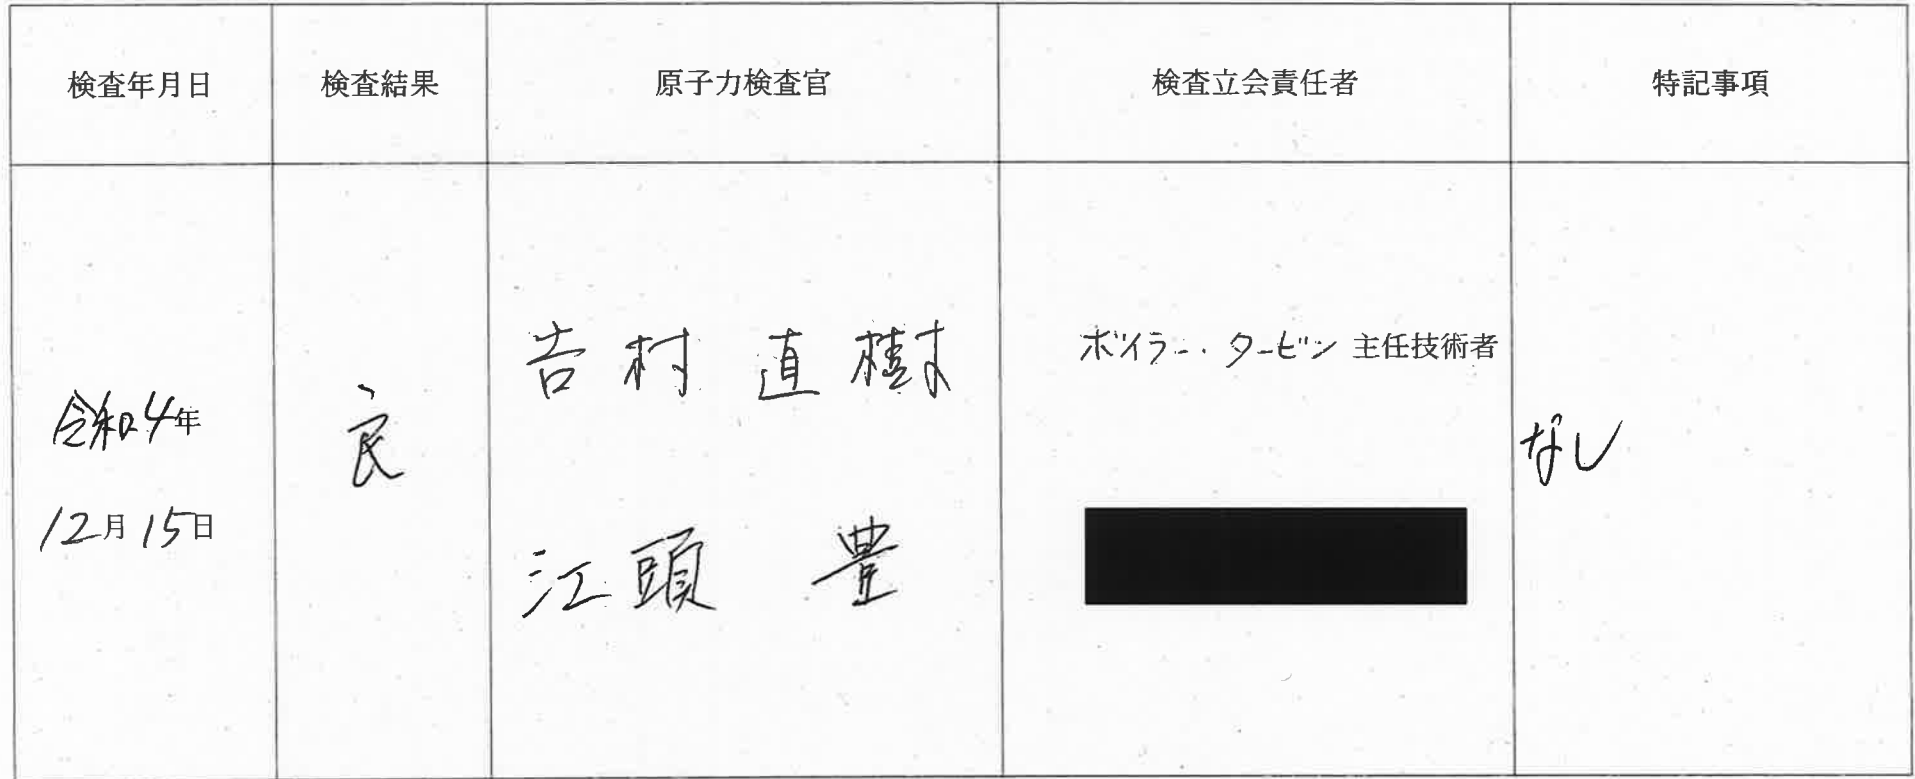 検査年月日 検査結果 原子力検査官 検査立会責任者 特記事項
令和4年
12月15日
良
吉村 直樹
江頭 豊
ボイラー・タービン 主任技術者
なし